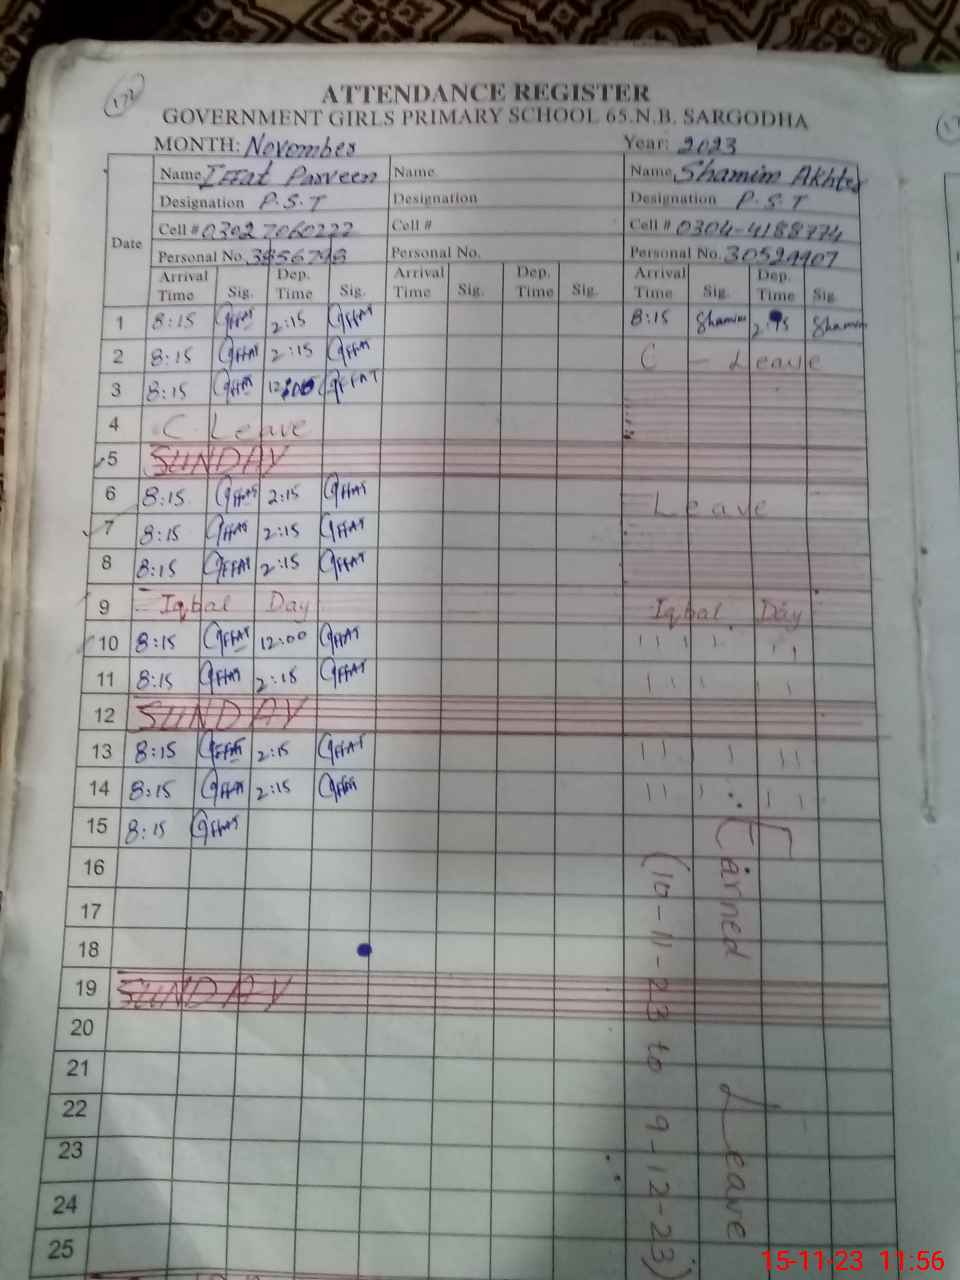 172
ATTENDANCE REGISTER
GOVERNMENT GIRLS PRIMARY SCHOOL 65.N.B. SARGODHA
MONTH: November Year: 2023
Date
Name Iffat Parveen Name Name Shamim Akhter
Designation P.S.T Designation Designation P.S.T
Cell # 03027060222 Cell # Cell # 0304-4188774
Personal No. Personal No. Personal No. 30524907
Arrival Time Sig. Dep. Time Sig. Arrival Time Sig. Dep. Time Sig. Arrival Time Sig. Dep. Time Sig
1 8:15 Iffat 2:15 Iffat 8:15 Shamim Shamim
2 8:15 Iffat 2:15 Iffat C - Leave
3 8:15 Iffat Iffat
4 C Leave
5 SUNDAY
6 8:15 Iffat 2:15 Iffat Leave
7 8:15 Iffat 2:15 Iffat
8 8:15 Iffat 2:15 Iffat
9 Iqbal Day Iqbal Day
10 8:15 Iffat 12:00 Iffat
11 8:15 Iffat 2:15 Iffat
12 SUNDAY
13 8:15 Iffat 2:15 Iffat
14 8:15 Iffat 2:15 Iffat
15 8:15 Iffat
16
17
18
19 SUNDAY
20
21
22
23
24
25
Earned Leave
(10-11-23 to 9-12-23)
15-11-23 11:56